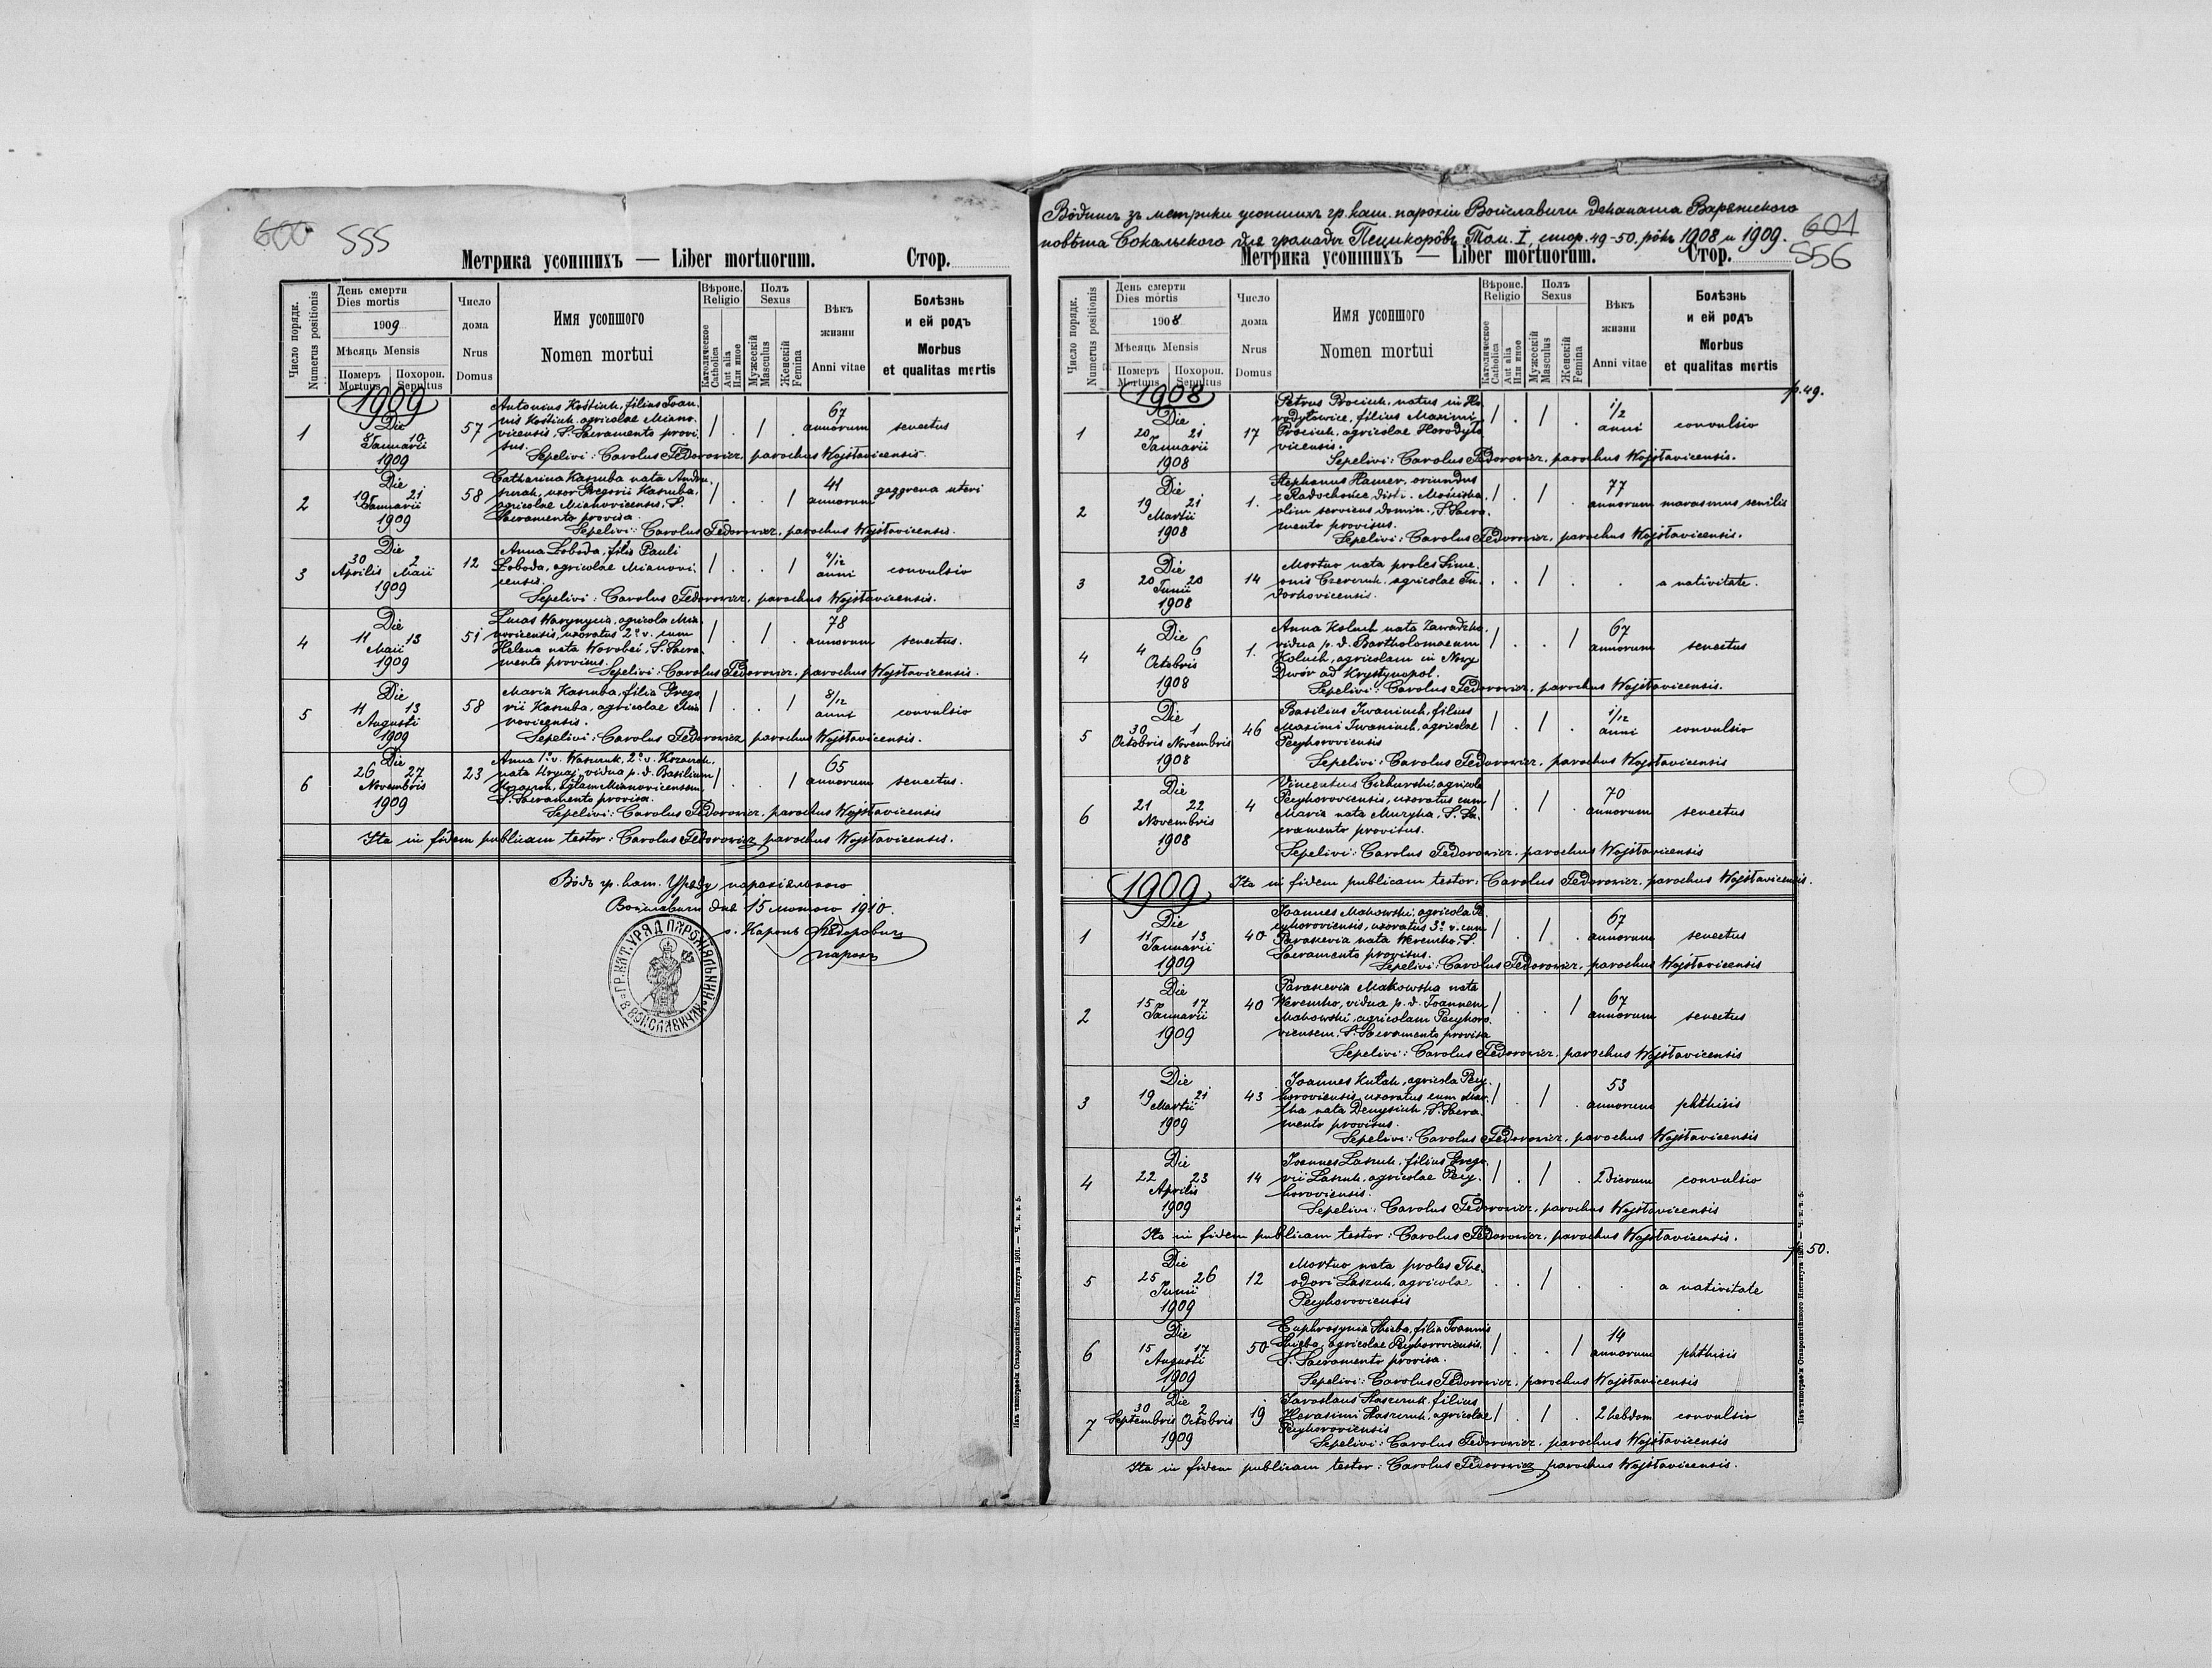 600 555
Метрика усопшихъ — Liber mortuorum. Стор.
Число порядк. Numerus positionis
День смерти
Dies mortis
1909
Мѣсяць Mensis
Померъ Mortuus
Похорон. Sepultus
Число дома
Nrus Domus
Имя усопшого
Nomen mortui
Вѣроис. Religio
Католическое Catholica
Aut alia Или иное
Полъ Sexus
Мужескій Masculus
Женскій Femina
Вѣкъ жизни
Anni vitae
Болѣзнь и ей родъ
Morbus et qualitas mortis
1909
1 Die 8 10 Januarii 1909 57
Antonius Kostiuk, filius Joan-
nis Kostiuk, agricolae Miano-
vicensis, S. Sacramento provi-
sus.
/ . / . 67 annorum senectus
Sepelivi: Carolus Fedorowicz, parochus Wojsławicensis.
2 Die 19 21 Januarii 1909 58
Catharina Kaszuba nata
uxor Gregorii Kaszuba,
agricolae Mianovicensis, S.
Sacramento provisa.
/ . . / 41 annorum gaggrena uteri
Sepelivi: Carolus Fedorowicz, parochus Wojsławicensis.
3 Die 30 Aprilis 2 Maii 1909 12
Anna Łoboda, filia Pauli
Łoboda, agricolae Mianovi-
censis.
/ . . / 4/12 anni convulsio
Sepelivi: Carolus Fedorowicz, parochus Wojsławicensis.
4 Die 11 13 Maii 1909 51
Lucas Warynycia, agricola Mia-
novicensis, uxoratus 2º v. cum
Helena nata Worobei, S. Sacra-
mento provisus.
/ . / . 78 annorum senectus.
Sepelivi: Carolus Fedorowicz, parochus Wojsławicensis.
5 Die 11 13 Augusti 1909 58
Maria Kaszuba, filia Grego-
rii Kaszuba, agricolae Mia-
novicensis.
/ . . / 8/12 anni convulsio
Sepelivi: Carolus Fedorowicz, parochus Wojsławicensis.
6 Die 26 27 Novembris 1909 23
Anna 1º v. 2º v.
nata vidua p. d. Basilium
Mianovicensem,
S. Sacramento provisa.
/ . . / 65 annorum senectus.
Sepelivi: Carolus Fedorowicz, parochus Wojsławicensis
Ita in fidem publicam testor: Carolus Fedorowicz, parochus Wojsławicensis.
Вôдъ гр. кат. Уряду парохіяльного
Войславичи дня 15 лютого 1910.
о. Кароль Федоровичъ
парохъ
ГР. КАТ. УРЯД ПАРОХІЯЛЬНИЙ В ВОЙСЛАВИЧАХ
Изъ типографіи Ставропигійского Института 1901. — Ч. к. з. 5.
Вôдпись зъ метрики усопшихъ гр. кат. парохіи Войславичи деканата Варяжского
повѣта Сокальского для громады Пецикорôвъ Том. I, стор. 49-50, рôкъ 1908 и 1909.
601 556
Метрика усопшихъ — Liber mortuorum. Стор.
Число порядк. Numerus positionis
День смерти
Dies mortis
1908
Мѣсяць Mensis
Померъ Mortuus
Похорон. Sepultus
Число дома
Nrus Domus
Имя усопшого
Nomen mortui
Вѣроис. Religio
Католическое Catholica
Aut alia Или иное
Полъ Sexus
Мужескій Masculus
Женскій Femina
Вѣкъ жизни
Anni vitae
Болѣзнь и ей родъ
Morbus et qualitas mortis
p. 49.
1908
1 Die 20 21 Januarii 1908 17
Petrus Prociuk, natus in Ho-
rodyłowice, filius Maximi
Prociuk, agricolae Horodyło-
vicensis.
/ . / . 1/2 anni convulsio
Sepelivi: Carolus Fedorowicz, parochus Wojsławicensis.
2 Die 19 21 Martii 1908 1.
Stephanus Hamer, oriundus
e Radochońce, distr. Mościska,
olim serviens domin., S. Sacra-
mento provisus.
/ . / . 77 annorum marasmus senilis
Sepelivi: Carolus Fedorowicz, parochus Wojsławicensis.
3 Die 20 20 Junii 1908 14
Mortuo nata proles Sime-
onis agricolae Tu-
dorkovicensis.
. . / . . a nativitate.
4 Die 4 6 Octobris 1908 1.
Anna Koluch nata Zawadzka,
vidua p. d. Bartholomaeum
Koluch, agricolam in Nowy
Dwór ad Krystynopol.
/ . . / 67 annorum senectus
Sepelivi: Carolus Fedorowicz, parochus Wojsławicensis.
5 Die 30 Octobris 1 Novembris 1908 46
Basilius Iwaniuk, filius
Maximi Iwaniuk, agricolae
Pecyhorovicensis
/ . / . 1/12 anni convulsio
Sepelivi: Carolus Fedorowicz, parochus Wojsławicensis
6 Die 21 22 Novembris 1908 4
Vincentius agricola
Pecyhorovicensis, uxoratus cum
Maria nata Muzyka, S. Sa-
cramento provisus.
/ . / . 70 annorum senectus
Sepelivi: Carolus Fedorowicz, parochus Wojsławicensis
Ita in fidem publicam testor: Carolus Fedorowicz, parochus Wojsławicensis.
1909
1 Die 11 13 Januarii 1909 40
Joannes Makowski, agricola Pe-
cyhorovicensis, uxoratus 3º v. cum
Parascevia nata Weremko, S.
Sacramento provisus.
/ . / . 67 annorum senectus
Sepelivi: Carolus Fedorowicz, parochus Wojsławicensis
2 Die 15 17 Januarii 1909 40
Parascevia Makowska nata
Weremko, vidua p. d. Joannem
Makowski, agricolam Pecyhoro-
vicensem, S. Sacramento provisa
/ . . / 67 annorum senectus
Sepelivi: Carolus Fedorowicz, parochus Wojsławicensis
3 Die 19 21 Martii 1909 43
Joannes Kułak, agricola Pecy-
horovicensis, uxoratus cum Mar-
tha nata Denysiuk, S. Sacra-
mento provisus.
/ . / . 53 annorum phthisis
Sepelivi: Carolus Fedorowicz, parochus Wojsławicensis
4 Die 22 23 Aprilis 1909 14
Joannes Laszuk, filius Grego-
rii Laszuk, agricolae Pecy-
horovicensis.
/ . / . 2 dierum convulsio
Sepelivi: Carolus Fedorowicz, parochus Wojsławicensis
Ita in fidem publicam testor: Carolus Fedorowicz, parochus Wojsławicensis.
p. 50.
5 Die 25 26 Junii 1909 12
Mortuo nata proles The-
odori Laszuk, agricolae
Pecyhorovicensis
. . / . . a nativitate
6 Die 15 17 Augusti 1909 50
Euphrosynia Skiba, filia Joannis
Skiba, agricolae Pecyhorovicensis.
S. Sacramento provisa.
/ . . / 14 annorum phthisis
Sepelivi: Carolus Fedorowicz, parochus Wojsławicensis
7 Die 30 Septembris 2 Octobris 1909 19
Jaroslaus Staszczuk, filius
Herasimi Staszczuk, agricolae
Pecyhorovicensis
/ . / . 2 hebdom convulsio
Sepelivi: Carolus Fedorowicz, parochus Wojsławicensis
Ita in fidem publicam testor: Carolus Fedorowicz, parochus Wojsławicensis.